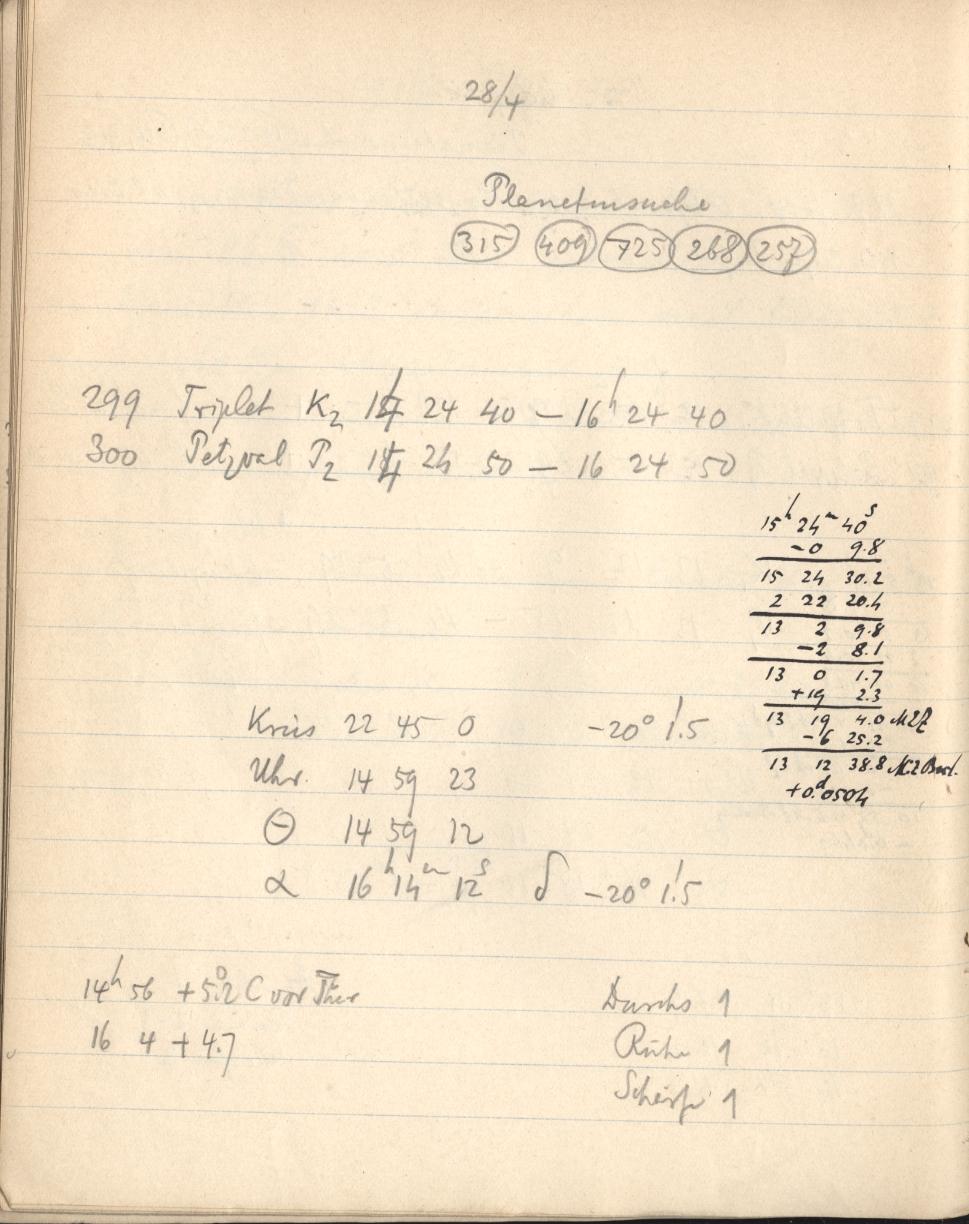 28/4
Planetensuche
315 409 725 268 257
299 Triplet K2 14 24 40 — 16h 24 40
300 Petzval P2 14 24 50 — 16 24 50
15h 24m 40s
-0 9.8
15 24 30.2
2 22 20.4
13 2 9.8
-2 8.1
13 0 1.7
+19 2.3
13 19 4.0 MZZ
-6 25.2
13 12 38.8 M.Z Berl.
+0.d0504
Kreis 22 45 0 -20° 1!5
Uhr. 14 59 23
Θ 14 59 12
α 16h 14m 12s δ -20° 1!5
14h 56 +5.°2 C vor Ther
16 4 +4.7
Durchs 1
Ruhe 1
Schärfe 1